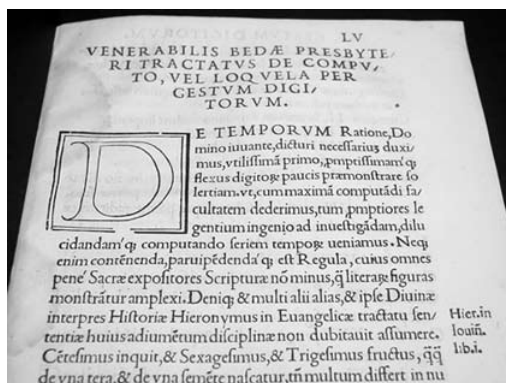 LV
VENERABILIS BEDÆ PRESBYTE/
RI TRACTATVS DE COMPV/
TO, VEL LOQVELA PER
GESTVM DIGI/
TORVM.
DE TEMPORVM Ratione, Do
mino iuuante, dicturi necessariũ duxi/
mus, vtilissimã primo, ꝓmptissimamq́;
flexus digitoꝝ paucis præmonstrare so
lertiam. vt, cum maximã computãdi fa/
cultatem dederimus, tum ꝓmptiores le
gentium ingenio ad inuestigãdam, dilu
cidandamq́; computando seriem tempoꝝ ueniamus. Neq;
enim contẽnenda, paruipẽdendaq́; est Regula, cuius omnes
pené Sacræ expositores Scripturæ nõ minus, q̃ literaꝝ figuras
monstrãtur amplexi. Deniq; & multi alii alias, & ipse Diuinæ
interpres Historiæ Hieronymus in Euangelicæ tractatu sen/
tentiæ huius adiumẽtum disciplinæ non dubitauit assumere.
Hier. in
Iouiñ.
lib.i.
Cẽtesimus inquit, & Sexagesimus, & Trigesimus fructus, q̃q̃
de vna terra, & de vna semẽte nascatur, tñ multum differt in nu